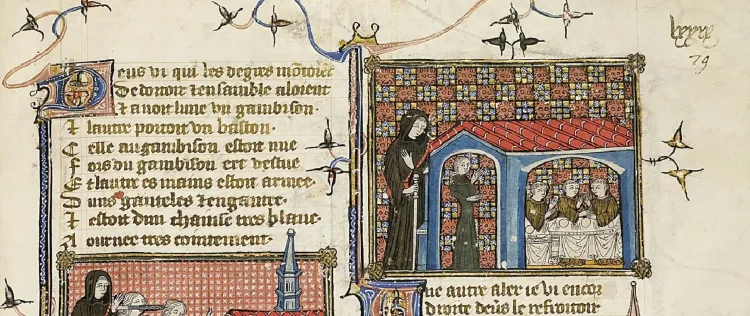 Deus vi qui les degres mōtoiet
De dortoir Et ensamble aloient
Et auoit lune vn gambison
Et lautre portoit vn baston
Celle au gambison estoit nue
Fors du gambison ert vestue
Et lautre es mains estoit armee
Duns ganteles et engantee
Et estoit dun chainse tres blanc
Aournee tres
lxxix
79
Une autre aler ie vi encor
Droite deūs le refroitoir